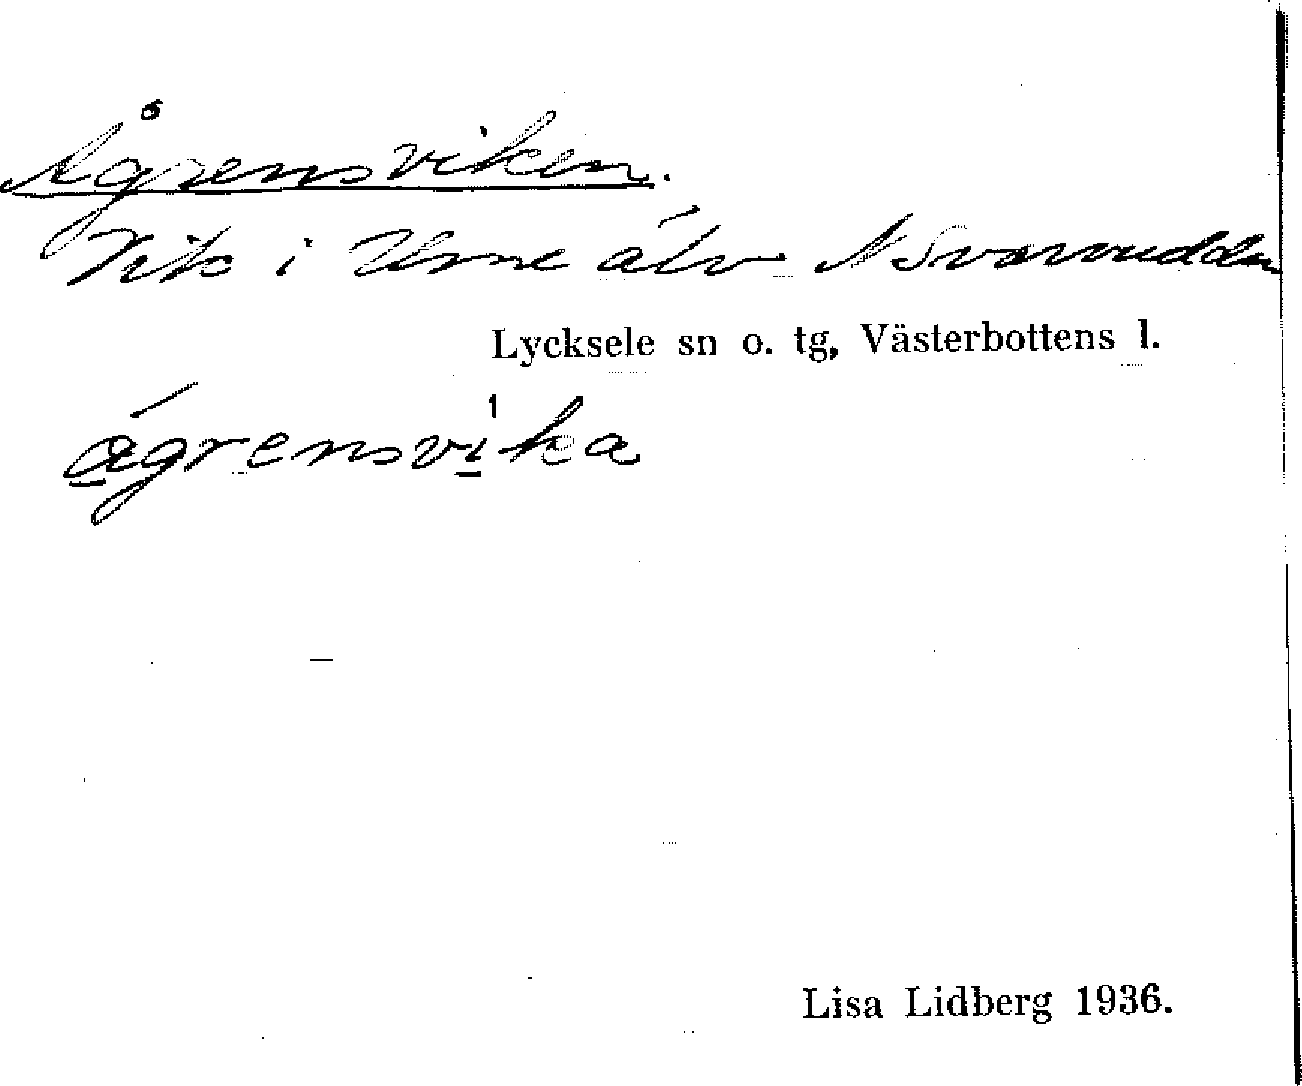 Ågrensviken.
Vik i Ume älv N Svarvudden
Lycksele sn o. tg, Västerbottens l.
ågrensvika
Lisa Lidberg 1936.